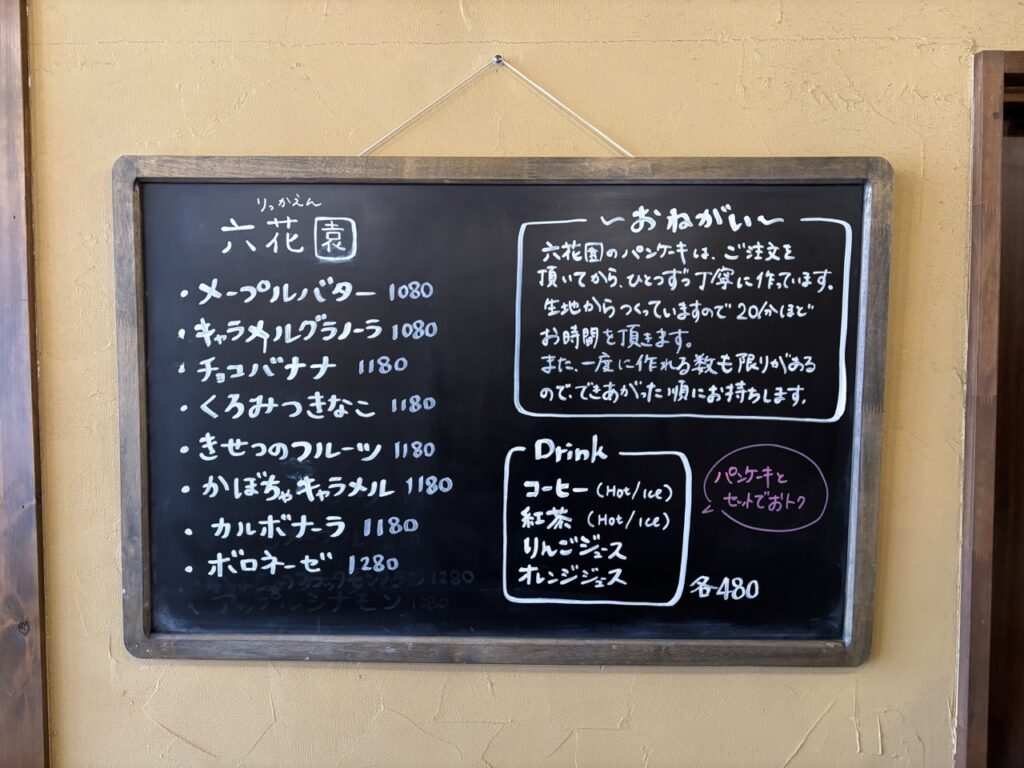 りっかえん
六花園
・メープルバター 1080
・キャラメルグラノーラ 1080
・チョコバナナ 1180
・くろみつきなこ 1180
・きせつのフルーツ 1180
・かぼちゃキャラメル 1180
・カルボナーラ 1180
・ボロネーゼ 1280
1280
アップルシナモン 1280
～おねがい～
六花園のパンケーキは、ご注文を
頂いてから、ひとつずつ丁寧に作っています。
生地からつくっていますので20分ほど
お時間を頂きます。
また、一度に作れる数も限りがある
ので、できあがった順にお持ちします。
Drink
コーヒー (Hot/Ice)
紅茶 (Hot/Ice)
りんごジュース
オレンジジュース
各480
パンケーキと
セットでおトク